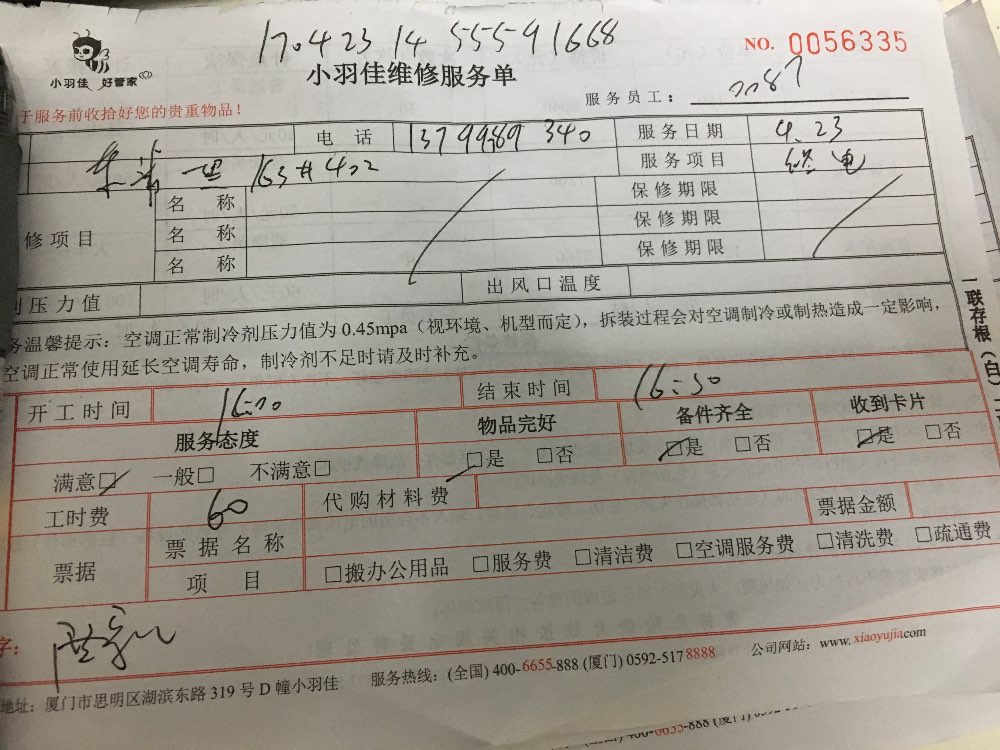 170423 14 55591668
小羽佳 好管家
NO. 0056335
小羽佳维修服务单
服务员工:
于服务前收拾好您的贵重物品!
电 话 13799989 340 服务日期 4.23
一里 163#402 服务项目 修电
名 称 保修期限
修项目 名 称 保修期限
名 称 保修期限
剂压力值 出风口温度
务温馨提示:空调正常制冷剂压力值为 0.45mpa(视环境、机型而定),拆装过程会对空调制冷或制热造成一定影响,
空调正常使用延长空调寿命,制冷剂不足时请及时补充。
一联存根(白)
开工时间 结束时间 16:50
服务态度 物品完好 备件齐全 收到卡片
满意□ 一般□ 不满意□ □是 □否 □是 □否 □是 □否
工时费 60 代购材料费 票据金额
票据 票据名称
项 目 □搬办公用品 □服务费 □清洁费 □空调服务费 □清洗费 □疏通费
字:
地址:厦门市思明区湖滨东路 319 号 D 幢小羽佳 服务热线:(全国) 400-6655-888 (厦门) 0592-517 8888 公司网站:www.xiaoyujia.com